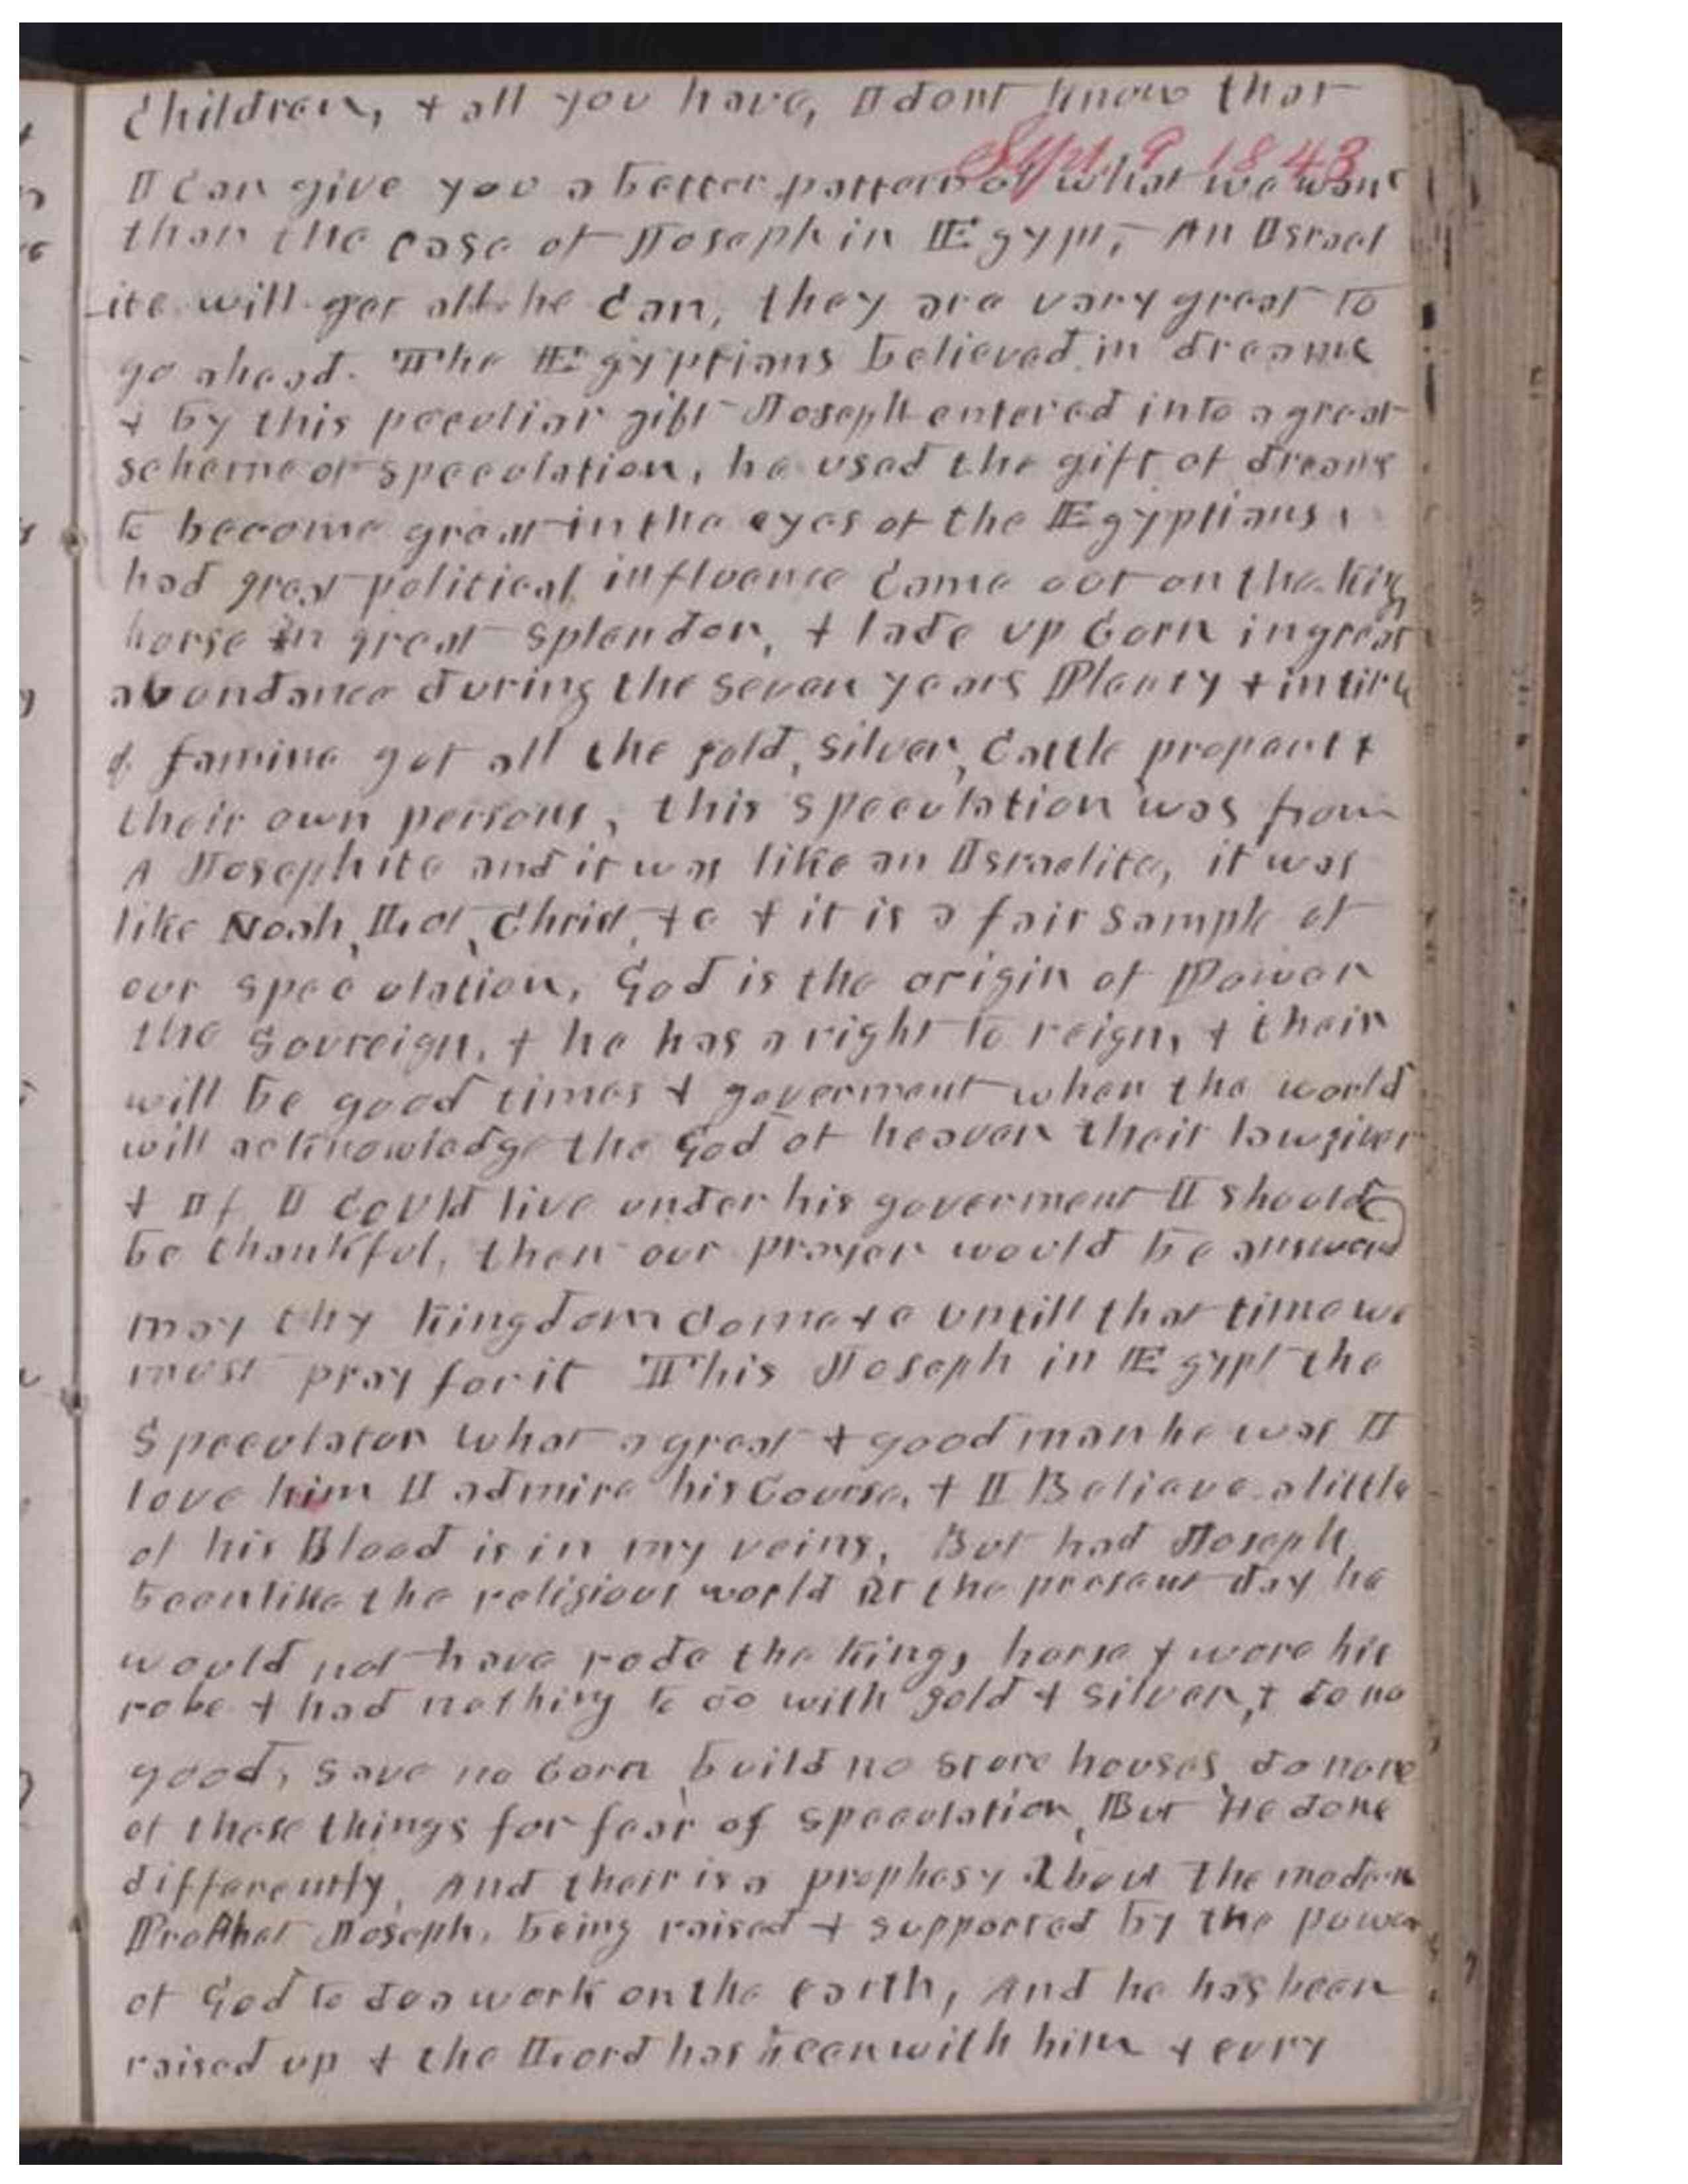 Children, & all you have, I dont know that
Sept 9 1843
I can give you a better pattern of what we want
than the case of Joseph in Egypt, An Israel
-ite will get all he can, they are vary great to
go ahead. The Egyptians believed in dreams
& by this peculiar gift Joseph entered into a great
scheme of speculation, he used the gift of dreams
to become great in the eyes of the Egyptians,
had great political influence came out on the king
horse in great splendor, & lade up corn in great
abundance during the seven years Plenty & in time
of famine got all the gold, silver, cattle propert &
their own persons, this speculation was from
A Josephite and it was like an Israelite, it was
like Noah, Lot, Christ, &c & it is a fair sample of
our speculation, God is the origin of Power
the Sovreign, & he has a right to reign, & their
will be good times & goverment when the world
will acknowledge the God of heaven their lawgiver
& If I could live under his goverment I should
be thankful, then our prayer would be answerd
may thy kingdom come &c untill that time we
must pray for it This Joseph in Egypt the
Speculator what a great & good man he was I
love him I admire his course, & I Believe a little
of his Blood is in my veins, But had Joseph
been like the religious world at the present day he
would not have rode the kings horse & wore his
robe & had nothing to do with gold & silver, & do no
good, save no corn, build no store houses, do none
of these things for fear of speculation, But He done
differently, And their is a prophesy About the modern
Prophet Joseph, being raised & supported by the power
of God to do a work on the earth, And he has been
raised up & the Lord has been with him & evry